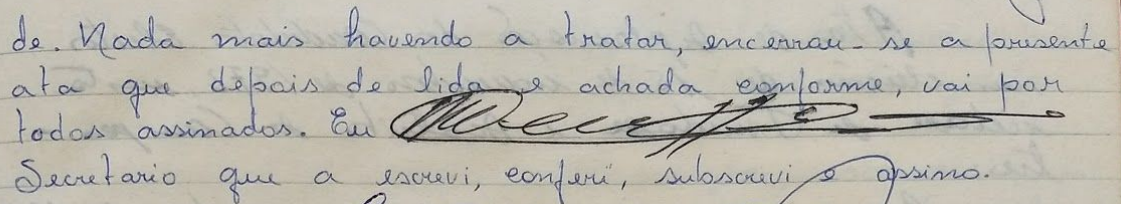 de. Nada mais havendo a tratar, encerrou-se a presente
ata que depois de lida e achada conforme, vai por
todos assinados. Eu
Secretario que a escrevi, conferi, subscrevi e assino.